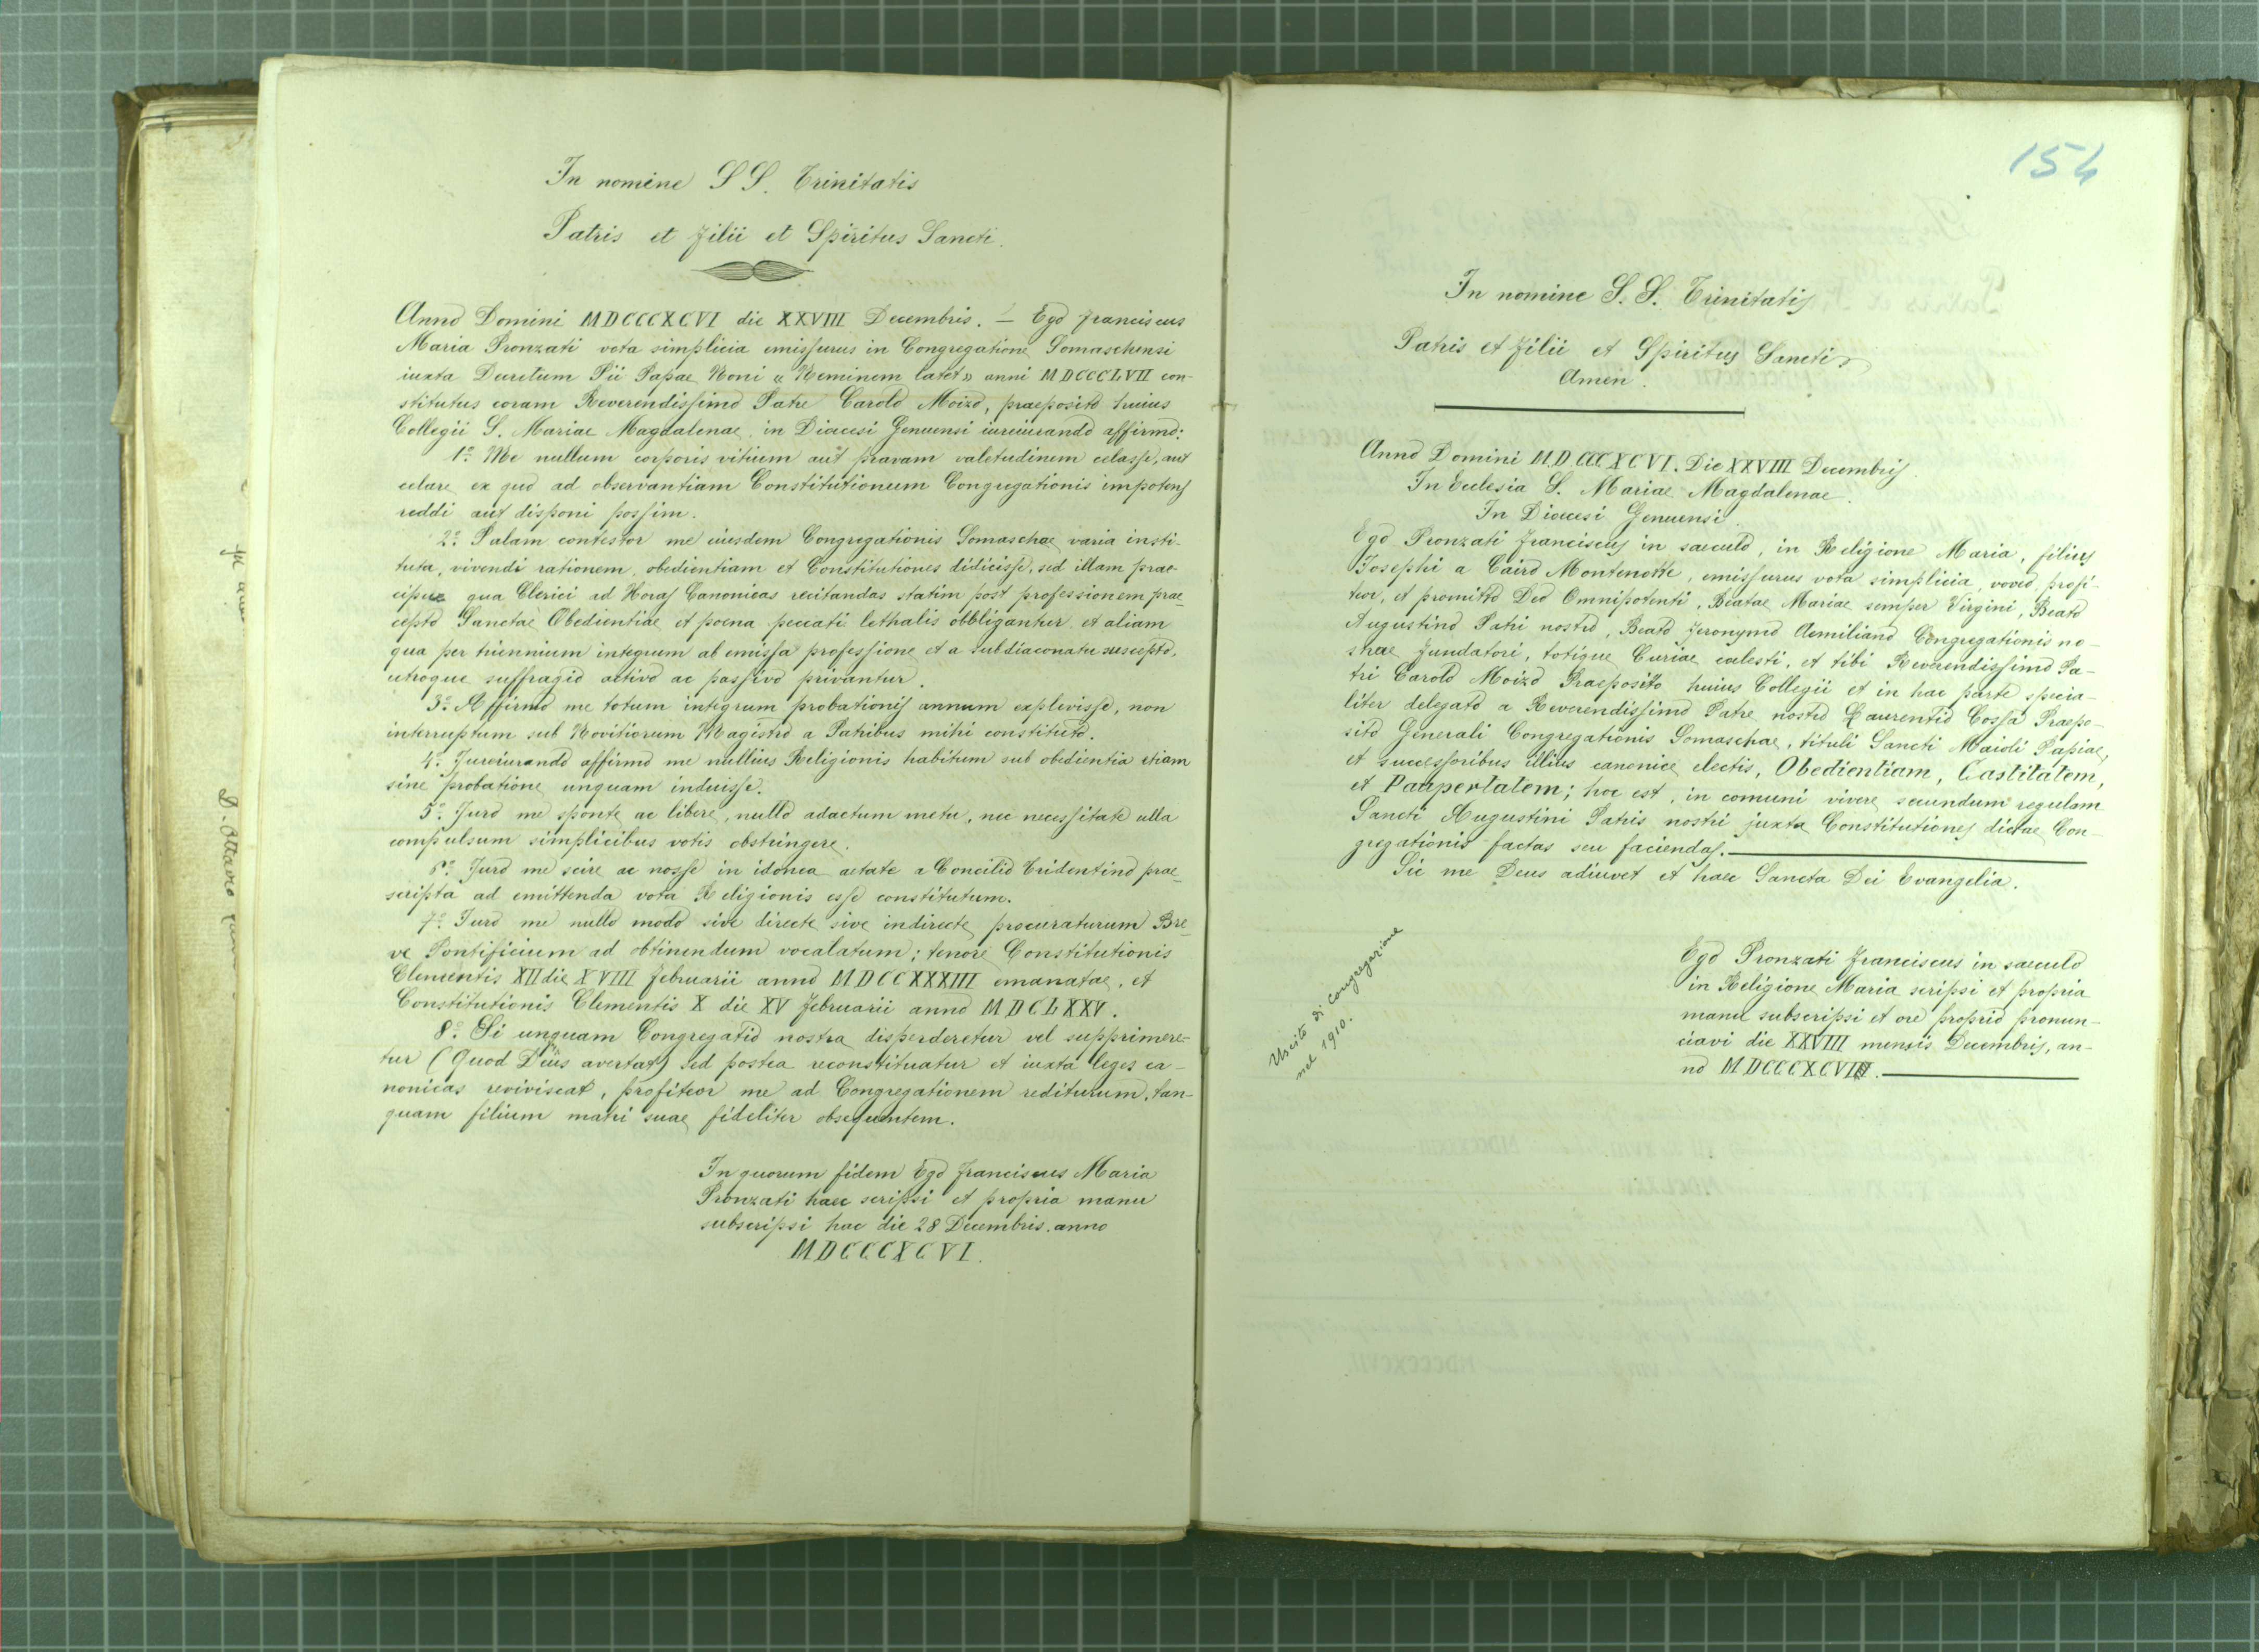 In nomine S S. Trinitatis
Patris et Filii et Spiritus Sancti.
Anno Domini MDCCCXCVI die XXVIII Decembris. — Ego Franciscus
Maria Pronzati vota simplicia emissurus in Congregatione Somaschensi
iuxta Decretum Pii Papae Noni « Neminem latet » anni MDCCCLVII con-
stitutus coram Reverendissimo Patre Carolo Moizo, praeposito huius
Collegii S. Mariae Magdalenae, in Diocesi Genuensi iureiurando affirmo:
1.º Me nullum corporis vitium aut pravam valetudinem celasse, aut
celare, ex quo ad observantiam Constitutionum Congregationis impotens
reddi aut disponi possim.
2.º Palam contestor me eiusdem Congregationis Somaschae varia insti-
tuta, vivendi rationem, obedientiam et Constitutiones didicisse, sed illam prae-
cipue qua Clerici ad Horas Canonicas recitandas statim post professionem prae-
cepto Sanctae Obedientiae et poena peccati lethalis obbligantur et aliam
qua per triennium integrum ab emissa professione et a subdiaconatu suscepto,
utroque suffragio activo ac passivo privantur.
3.º Affirmo me totum integrum probationis annum explevisse, non
interruptum sub Novitiorum Magistro a Patribus mihi constituto.
4.º Jureiurando affirmo me nullius Religionis habitum sub obedientia etiam
sine probatione unquam induisse.
5.º Juro me sponte ac libere, nullo adactum metu, nec necessitate ulla
compulsum simplicibus votis obstringere.
6.º Juro me scire ac nosse in idonea aetate a Concilio Tridentino prae-
scripta ad emittenda vota Religionis esse constitutum.
7.º Juro me nullo modo sive directe sive indirecte procuraturum Bre-
ve Pontificium ad obtinendum vocalatum; tenore Constitutionis
Clementis XII die XVIII Februarii anno MDCCXXXIII emanatae, et
Constitutionis Clementis X die XV Februarii anno MDCLXXV.
8.º Si unquam Congregatio nostra disperderetur vel supprimere-
tur (Quod Deus avertat) sed postea reconstituatur et iuxta leges ca-
nonicas reviviscat, profiteor me ad Congregationem rediturum, tan-
quam filium matri suae fideliter obsequentem.
In quorum fidem Ego Franciscus Maria
Pronzati haec scripsi et propria manu
subscripsi hac die 28 Decembris anno
MDCCCXCVI.
154
In nomine S. S. Trinitatis
Patris et Filii et Spiritus Sancti
Amen.
Anno Domini MDCCCXCVI. Die XXVIII Decembris.
In Ecclesia S. Mariae Magdalenae.
In Diocesi Genuensi.
Ego Pronzati Franciscus in saeculo, in Religione Maria, filius
Josephi a Cairo Montenotte, emissurus vota simplicia, voveo, profi-
teor, et promitto Deo Omnipotenti, Beatae Mariae semper Virgini, Beato
Augustino Patri nostro, Beato Jeronymo Aemiliano Congregationis no-
strae fundatori, totique Curiae coelesti, et tibi Reverendissimo Pa-
tri Carolo Moizo Praeposito huius Collegii et in hac parte specia-
liter delegato a Reverendissimo Patre nostro Laurentio Cossa Praepo-
sito Generali Congregationis Somaschae, tituli Sancti Maioli Papiae,
et successoribus illius canonice electis, Obedientiam, Castitatem,
et Paupertatem; hoc est, in comuni vivere secundum regulam
Sancti Augustini Patris nostri juxta Constitutiones dictae Con-
gregationis factas seu faciendas.
Sic me Deus adiuvet et haec Sancta Dei Evangelia.
Ego Pronzati Franciscus in saeculo
in Religione Maria scripsi et propria
manu subscripsi et ore proprio pronun-
ciavi die XXVIII mensis Decembris, an-
no MDCCCXCVI.
Uscito di congregazione
nel 1910.